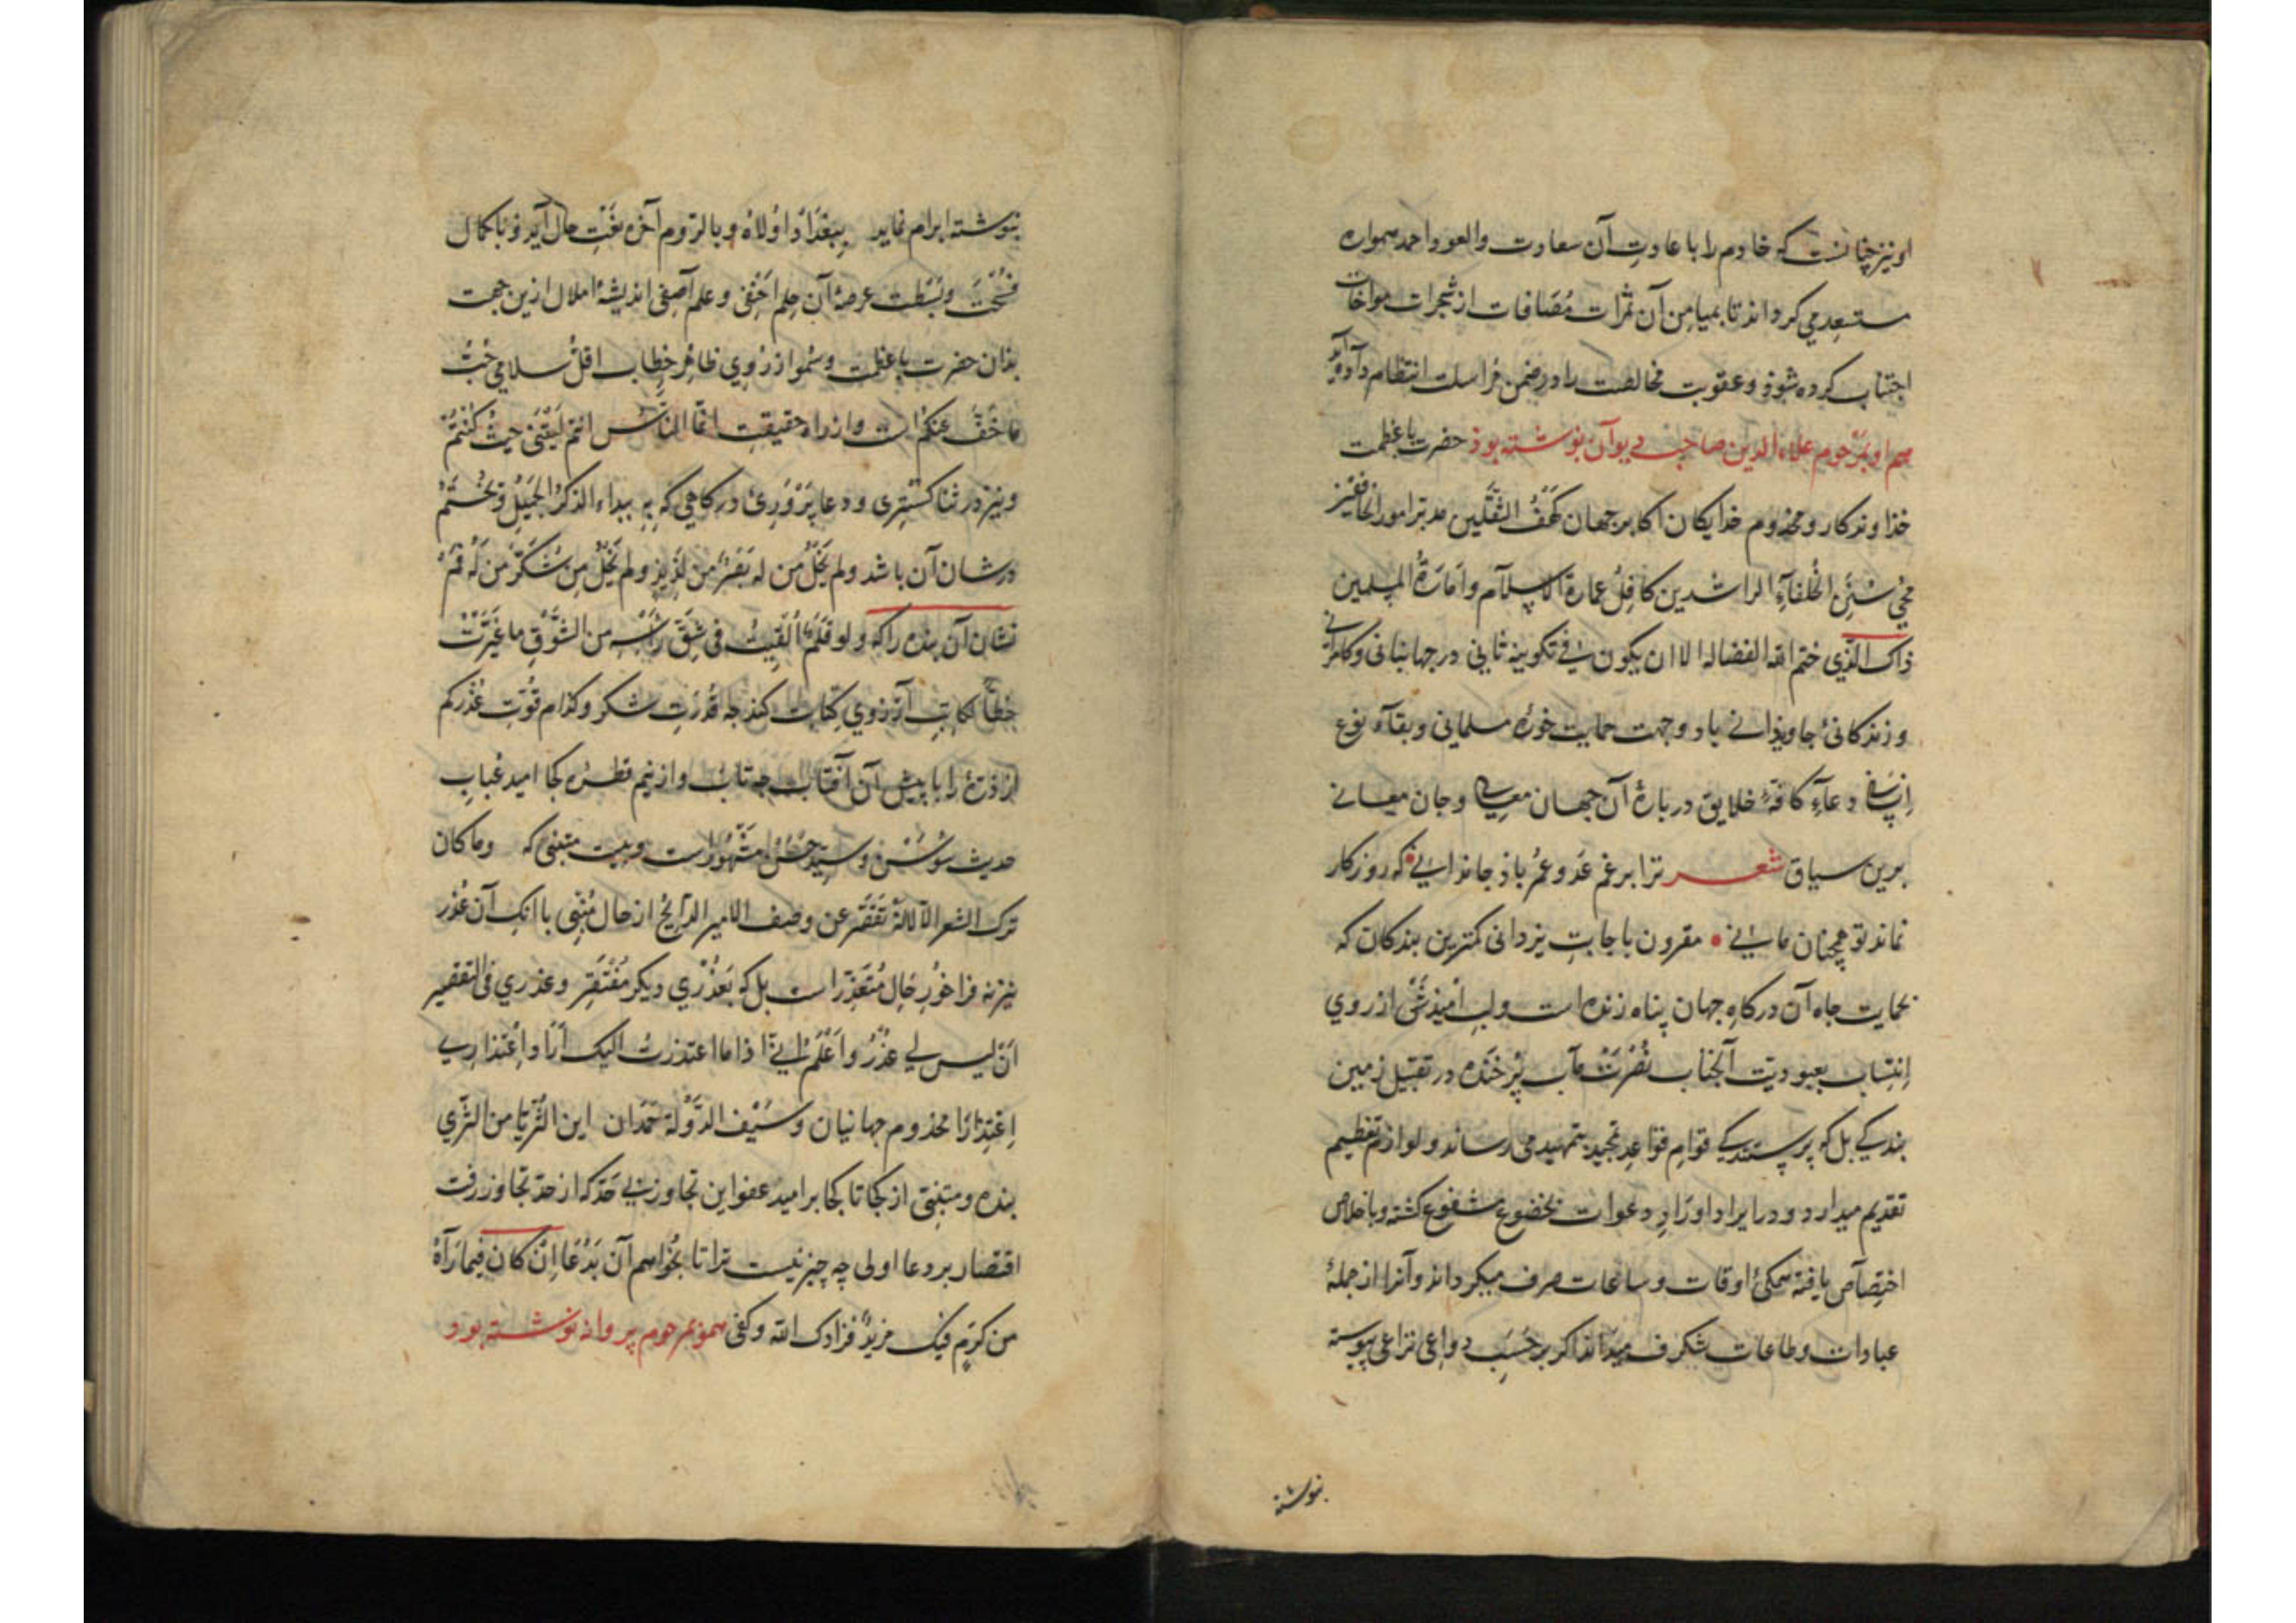 او نیز چنانست که خادم را با عادتِ آن سعادت والعود احمد همواره
مستسعد می کرداند تا بمیامن آن ثمرات مُصَافات از شجرات مواخات
اجتناب کرده شوذ و عقوبت مخالفت را در ضمن مراسلت انتظام داده آید
هم او بمرحوم علاء الدین صاحب دیوان نوشته بوذ حضرت با عظمت
خذاوندکار و مخذوم خذایکان اکابر جهان کَهْفُ الثَّقَلَین مدبّر امور الخافقَیْن
مُحْیِ سُنَنِ الخُلفآءِ الراشدین کافِلُ عمارة الاسلآم وامَارَةُ المسلمین
ذاک الّذی ختم الله الفضالــه الا ان یکون فی تکوینه ثانی در جهانبانی و کامرانی
و زندکانیٔ جاویذانی باد و جهت حمایت حوزهٔ مسلمانی و بقآء نوع
اِنسانی دعآءِ کافهٔ خلایق در بارهٔ آن جهان معالی و جان معانی
برین سیاق شعــر ترا برغم عَدو عمُر باذ جاندانی که روزکار
نماند تو همچنان مانی مقرون باجابتِ یزدانی کمترین بندکان که
بحمایت جاه آن درکاهِ جهان پناه زنده است و لبِ اُمیذش از روی
اِنتِساب بعبودیّت آنجناب نُصْرَتْ مآب پُر خَنده در تقبیل زمین
بندکی بل که پرستندکی قوامِ قواعِد تمجید بتمهید می رساند و لوازم تعظیم
تقدیم میدارد و در ایراد اوْرَادِ دعوات بخضوع مشفوع کشته و باخلاص
اختِصآص یافته همکیٔ اوقات و ساعات صرف میکرداند و آنرا از جملهٔ
عبادات و طاعات شکرف میداند اکر بر حَسَبِ دواعی نزاعی پیوسته
بنوشته
بنوشته ابرام نماید بِبَغْدَادَ اوْلاهُ و بالرّوم آخره نَعْتِ حال آید و با کمال
فُسْحَتْ و بَسْطت عرصهٔ آن حِلم اَحْنَفی و علم آصفی اندیشهٔ املال ازین جهت
بذان حضرت با عظمت و سُمو از رُوی ظاهر خِطاب اقلّ سلامی حُبُّ
ما خَفَّ عنکمُ است و از راه حقیقت انّما النّاسُ انتم لَیْتَنی حیثُ کُنتمُ
و نیز در ثنا کستری و دعا پَرْوَرِیٔ درکاهی که بِهِ یبداء الذکرُ الجَمیلُ و یُخْتَمُ
در شان آن باشد ولم یَخْلُ مِن لم یَقِرُ مِن لَذِیذٍ ولم یَخْلُ مِن شُکرِ مَنْ لَهُ فَمُ
نشان آن بنده را که ولو قَلَمٌ اُلْقِیتُ فی شِقِّ رَأسِــه من الشَّوْقِ ما غَیَّرتُ
خَطّاً لکاتِبِ آرزوی کتابت کند چه قُدْرَتِ شکر و کذام قُوّتِ عُذْرکم
از ذَرّهٔ را با پیش آن آفتاب چه تاب و از نیم قطره کجا امید عُبابِ
حدیث سُوسَن و سَیّد حسن مشْهُوراست و بیت متنبی که وما کان
ترک الشعر الّا لانّه تَقْصُر عن وصف الامیر المَدایح از حال مُنْبی با آنک آن عُذر
نیز نه فراخُورِ حَالِ مُتَعَذّر است بل که بَعُذْرِی دیکر مُفْتَقِر و عذری فی التقصیر
اَنْ لیس لی عُذْرُ و اَعْلَمُ اَنّی اذا ما اعتذرتُ الیک اَرَا واِعْتذارِی
اِعْتِذارَا مخذوم جهانیان و سَیْف الدَّوْلة حَمدان این الثُّریّا من الثَّری
بنده و متنبّی از کجا تا کجا بر امید عفو این تجاوز بی حَدّ که از حدّ تجاوز رفت
اقتصار بر دعا اولی چه چیز نیست ترا تا بخواهم آن بَدُعا اِنْ کان فیما رَآهُ
من کرَمٍ فیک مزیدٌ فزادک الله و کفی هموبمرحوم پروانه نوشته بوذ